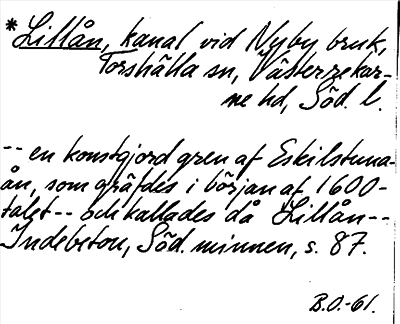 *Lillån, kanal vid Nyby bruk,
Torshälla sn, Västerrekar-
ne hd, Söd. l.
-- en konstgjord gren af Eskilstuna-
ån, som gräfdes i början af 1600-
talet -- och kallades då Lillån --
Indebetou, Söd. minnen, s. 87.
B.O.-61.